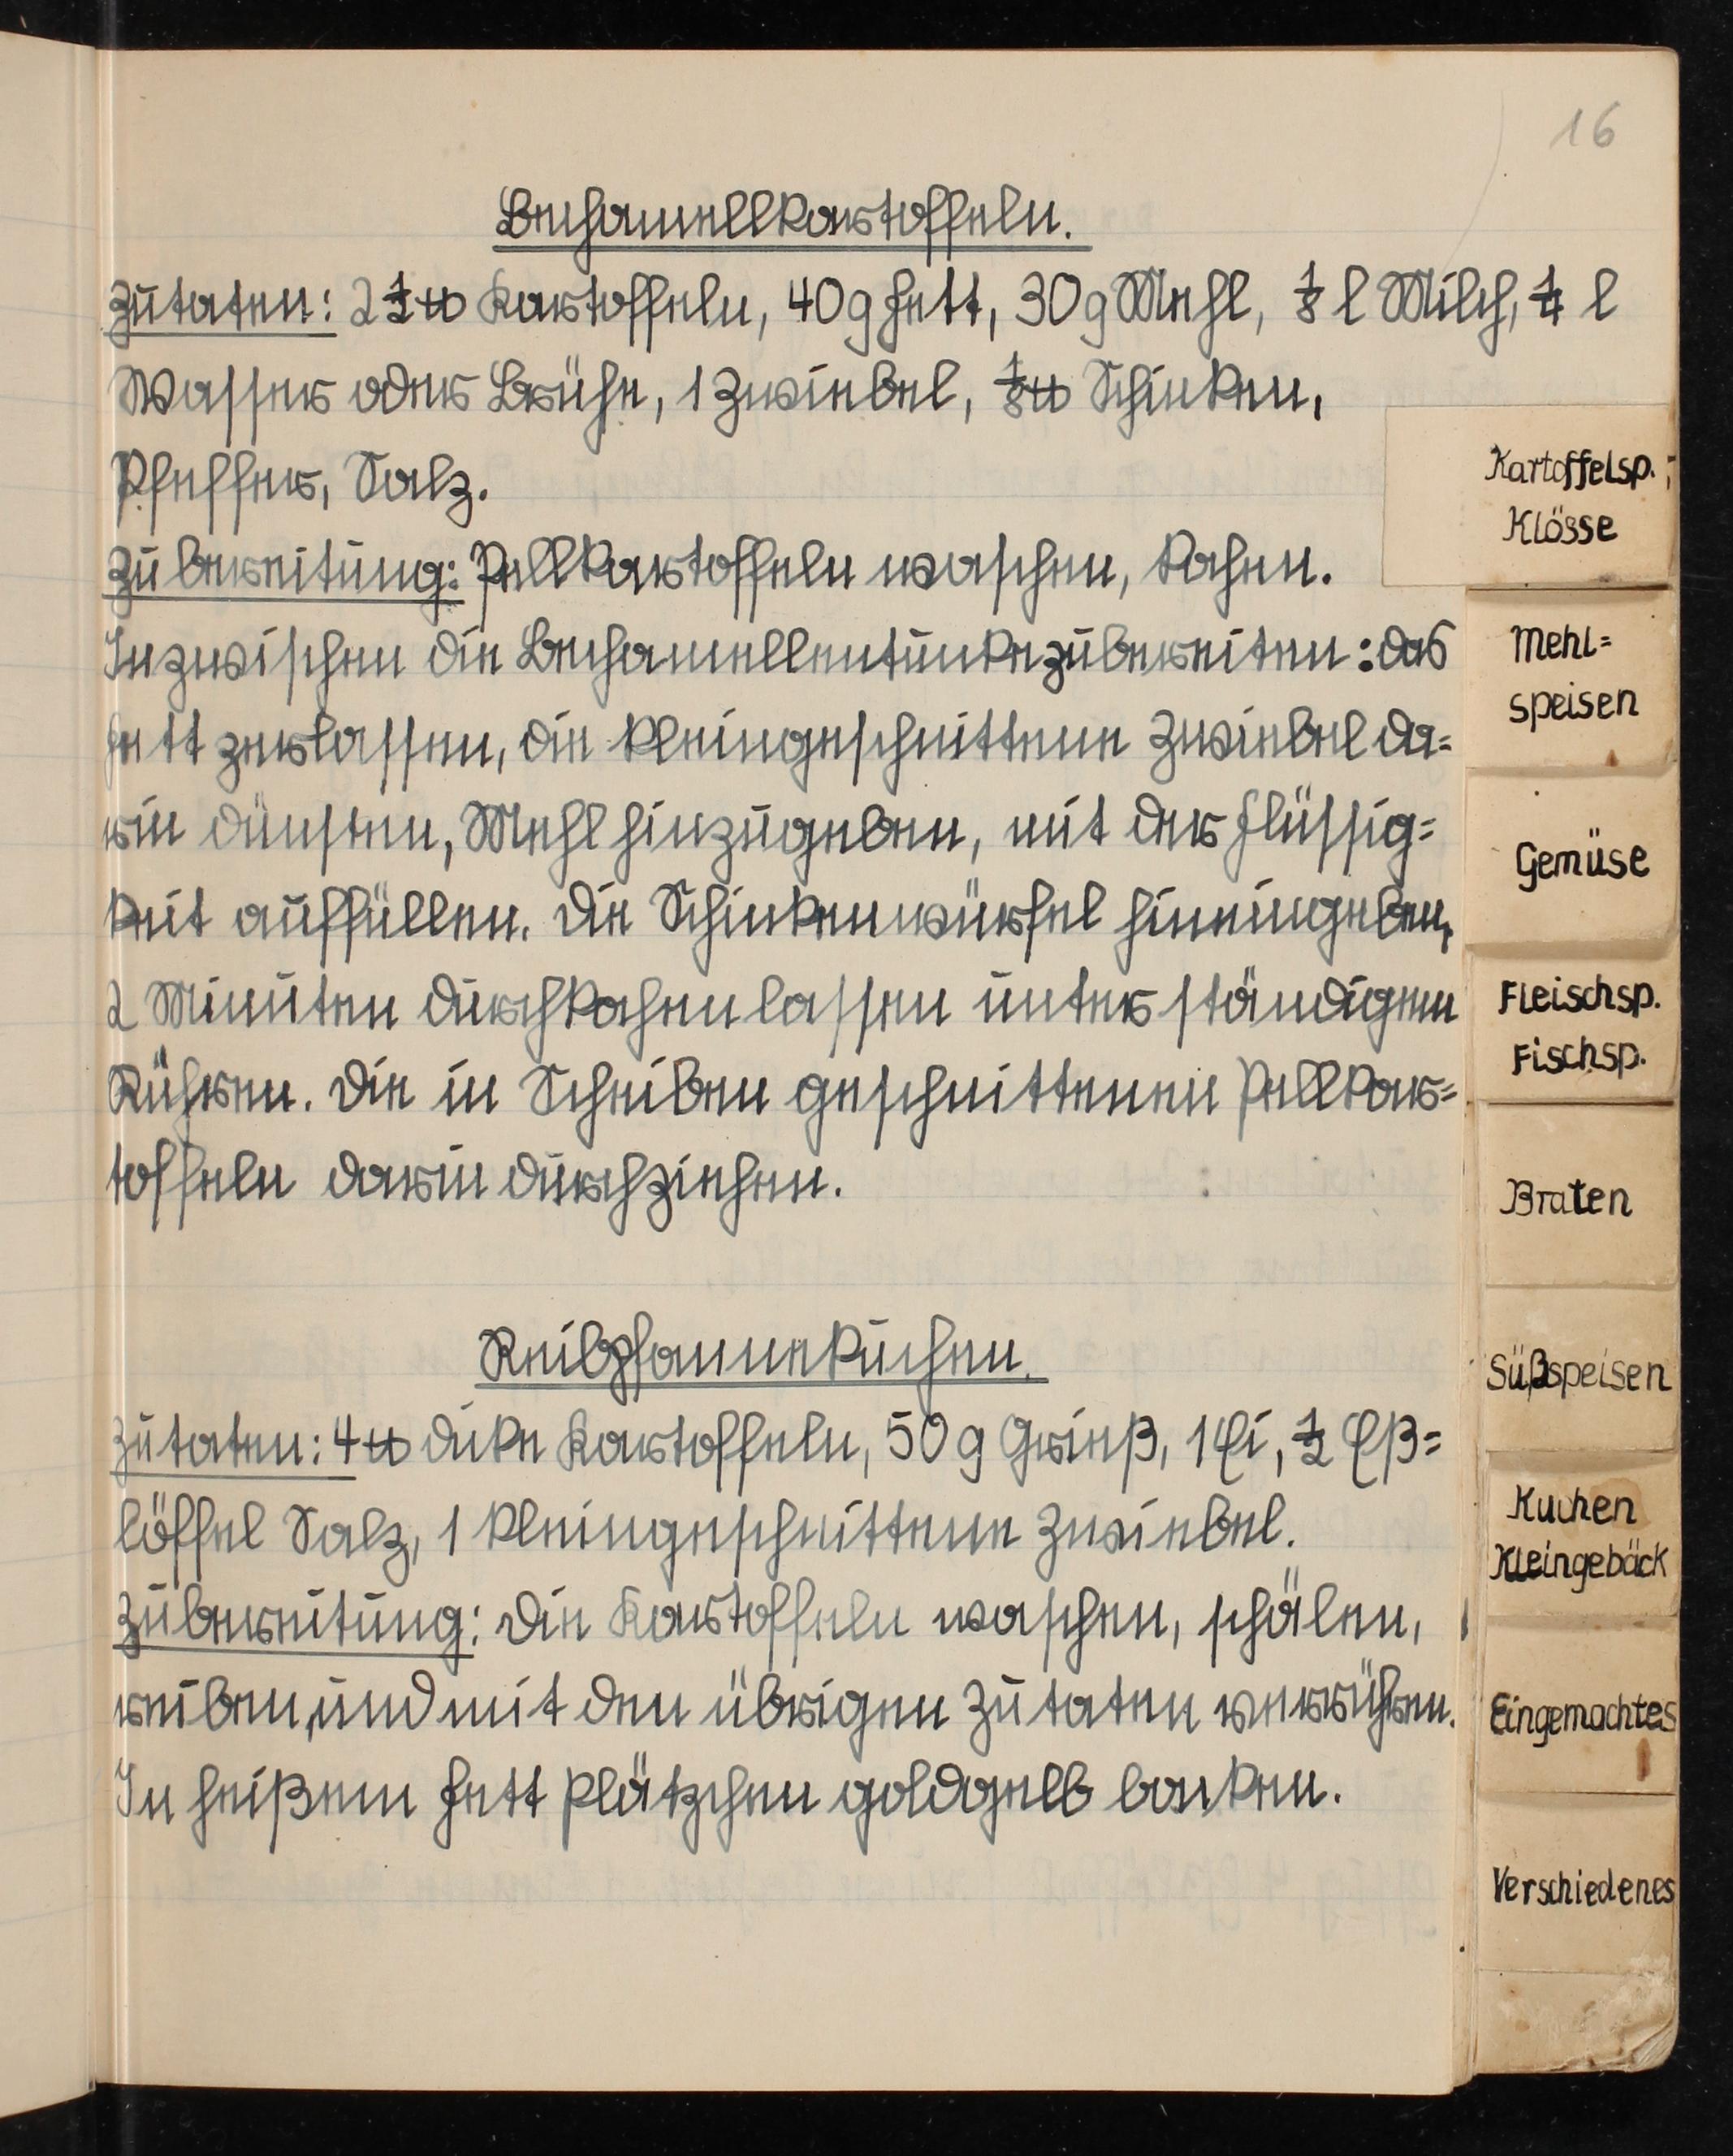 16
Bechamellkartoffeln.
Zutaten: 2 1/2 ℔ Kartoffeln, 40 g Fett, 30 g Mehl, 1/8 l Milch, 1/4 l
Wasser oder Brühe, 1 Zwiebel, 1/8 ℔ Schinken,
Pfeffer, Salz.
Zubereitung: Pellkartoffeln waschen, kochen.
Inzwischen die Bechamellentunke zubereiten: das
Fett zerlassen, die kleingeschnittene Zwiebel da=
rin dünsten, Mehl hinzugeben, mit der Flüssig=
keit auffüllen. Die Schinkenwürfel hineingeben,
2 Minuten durchkochen lassen unter ständigem
Rühren. Die in Scheiben geschnittenen Pellkar=
toffeln darin durchziehen.
Reibpfannekuchen.
Zutaten: 4 ℔ dicke Kartoffeln, 50 g Grieß, 1 Ei, 1/2 Eß=
löffel Salz, 1 kleingeschnittene Zwiebel.
Zubereitung: Die Kartoffeln waschen, schälen,
reiben, und mit den übrigen Zutaten verrühren.
In heißem Fett Plätzchen goldgelb backen.
Kartoffelsp.;
Klösse
Mehl=
speisen
Gemüse
Fleischsp.
Fischsp.
Braten
Süßspeisen
Kuchen
Kleingebäck
Eingemachtes
Verschiedenes